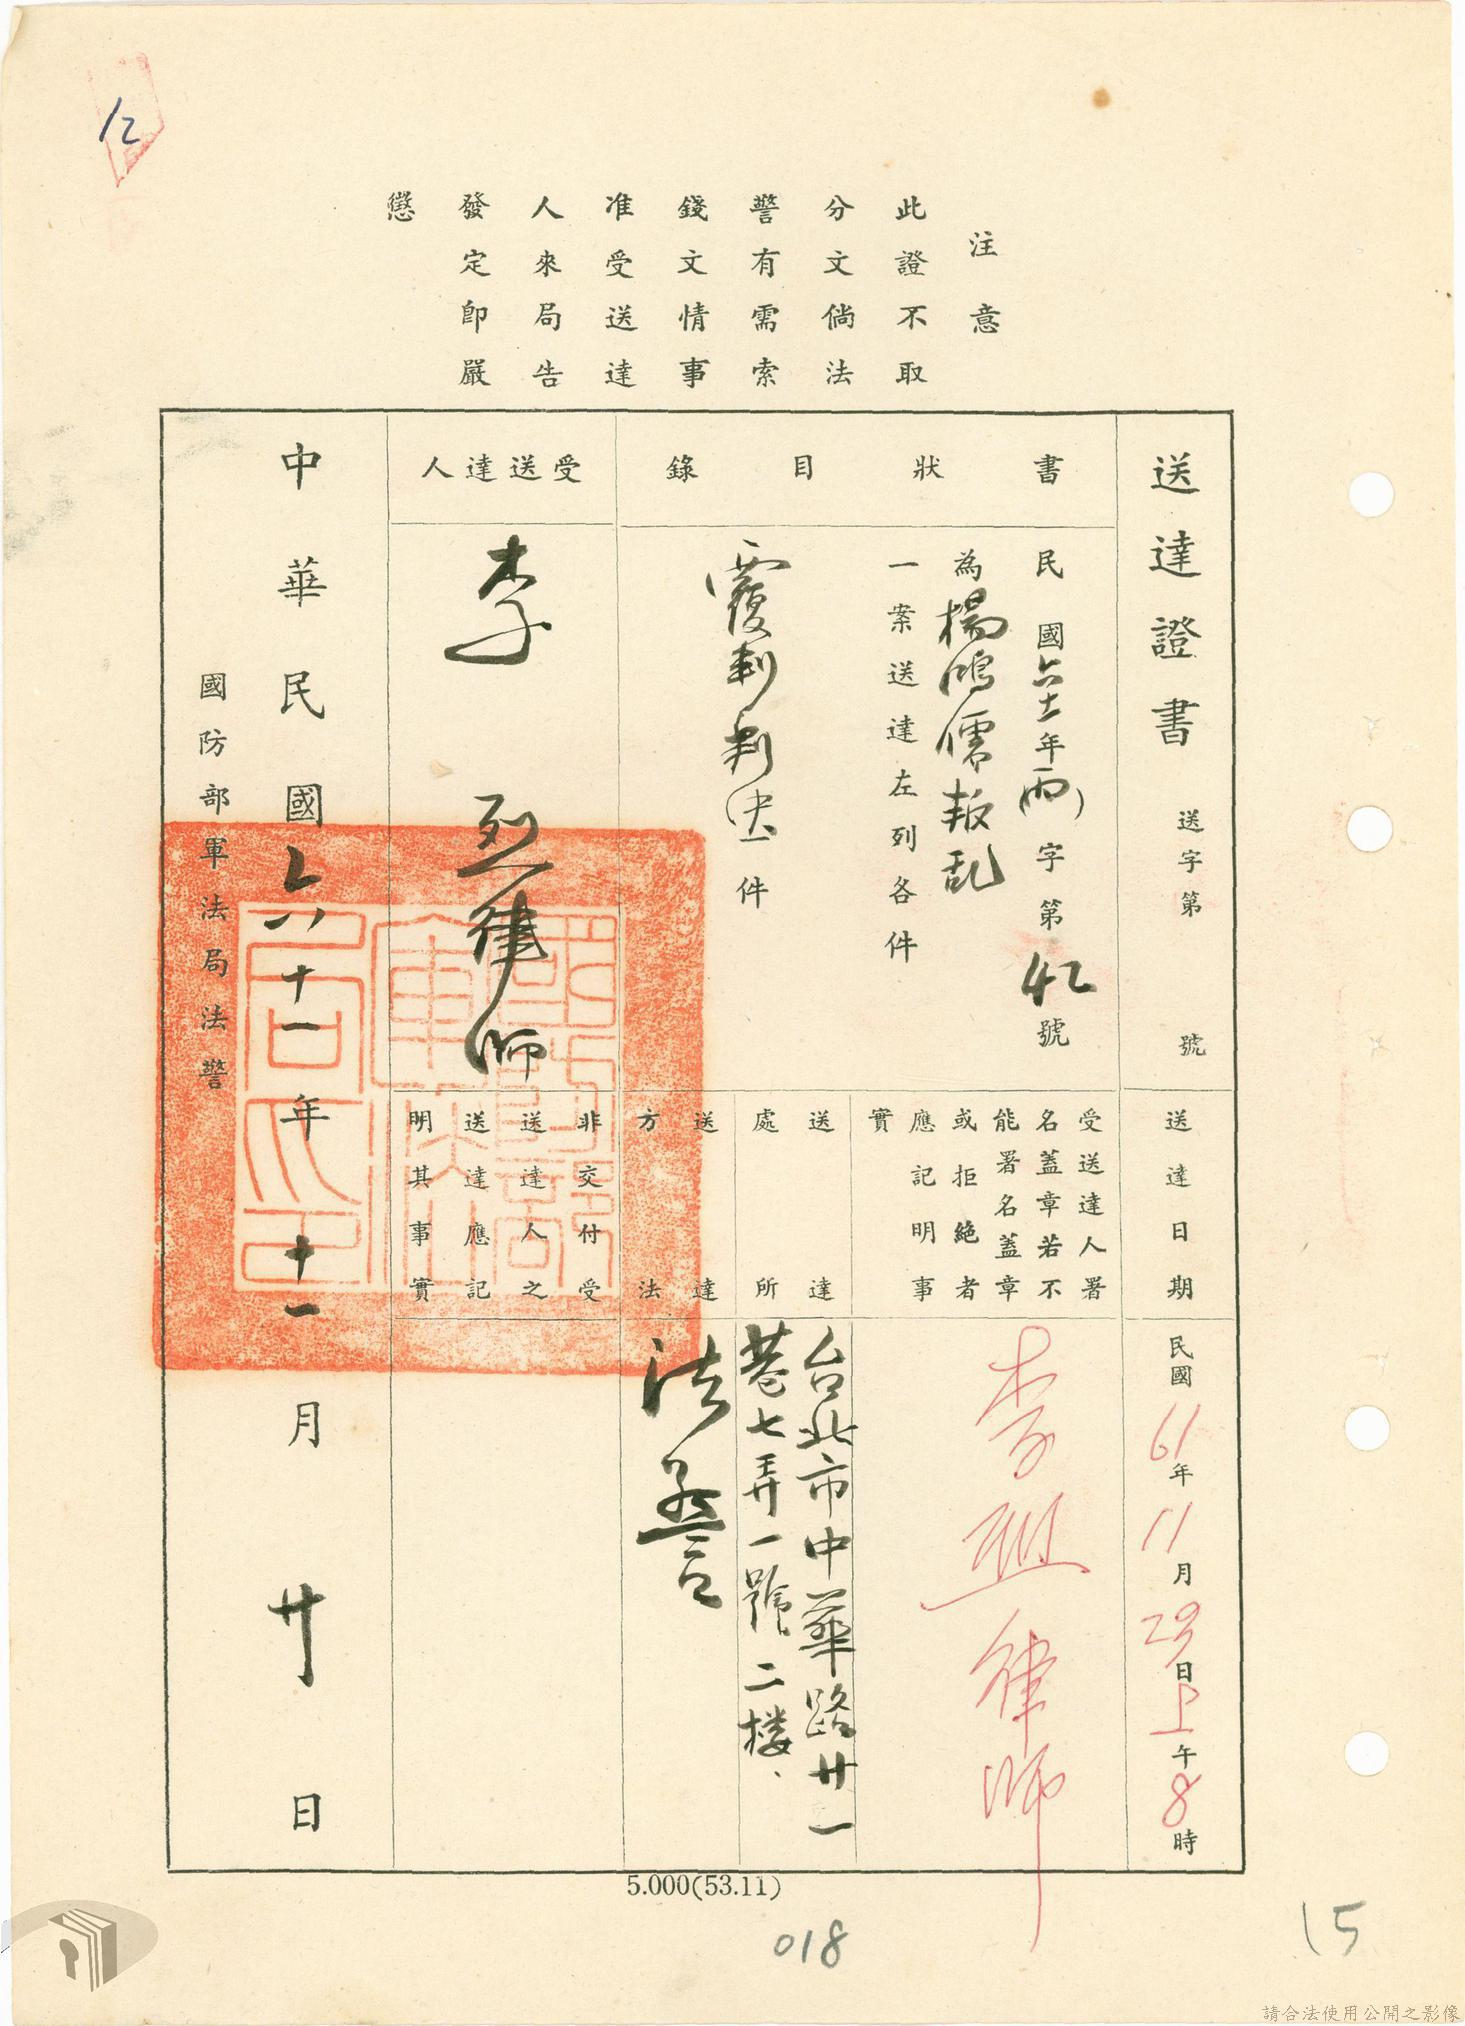 12
注意
此證不取
分文倘法
警有需索
錢文情事
准受送達
人來局告
發定即嚴
懲
送達證書 送字第 號
書狀目錄
民國六十一年(雨)字第42號
為楊鴻儒叛乱
一案送達左列各件
覆判判決一件
受送達人
李 烈律師
送達日期
民國61年11月29日上午8時
受送達人署
名蓋章若不
能署名蓋章
或拒絕者
應記明事
實
李烈律師
送達
處所
台北市中華路廿一
巷七弄一號二楼、
送達
方法
法警
非交付受
送達人之
送達應記
明其事實
中華民國六十一年十一月廿日
國防部軍法局法警
5.000(53.11)
018
15
請合法使用公開之影像